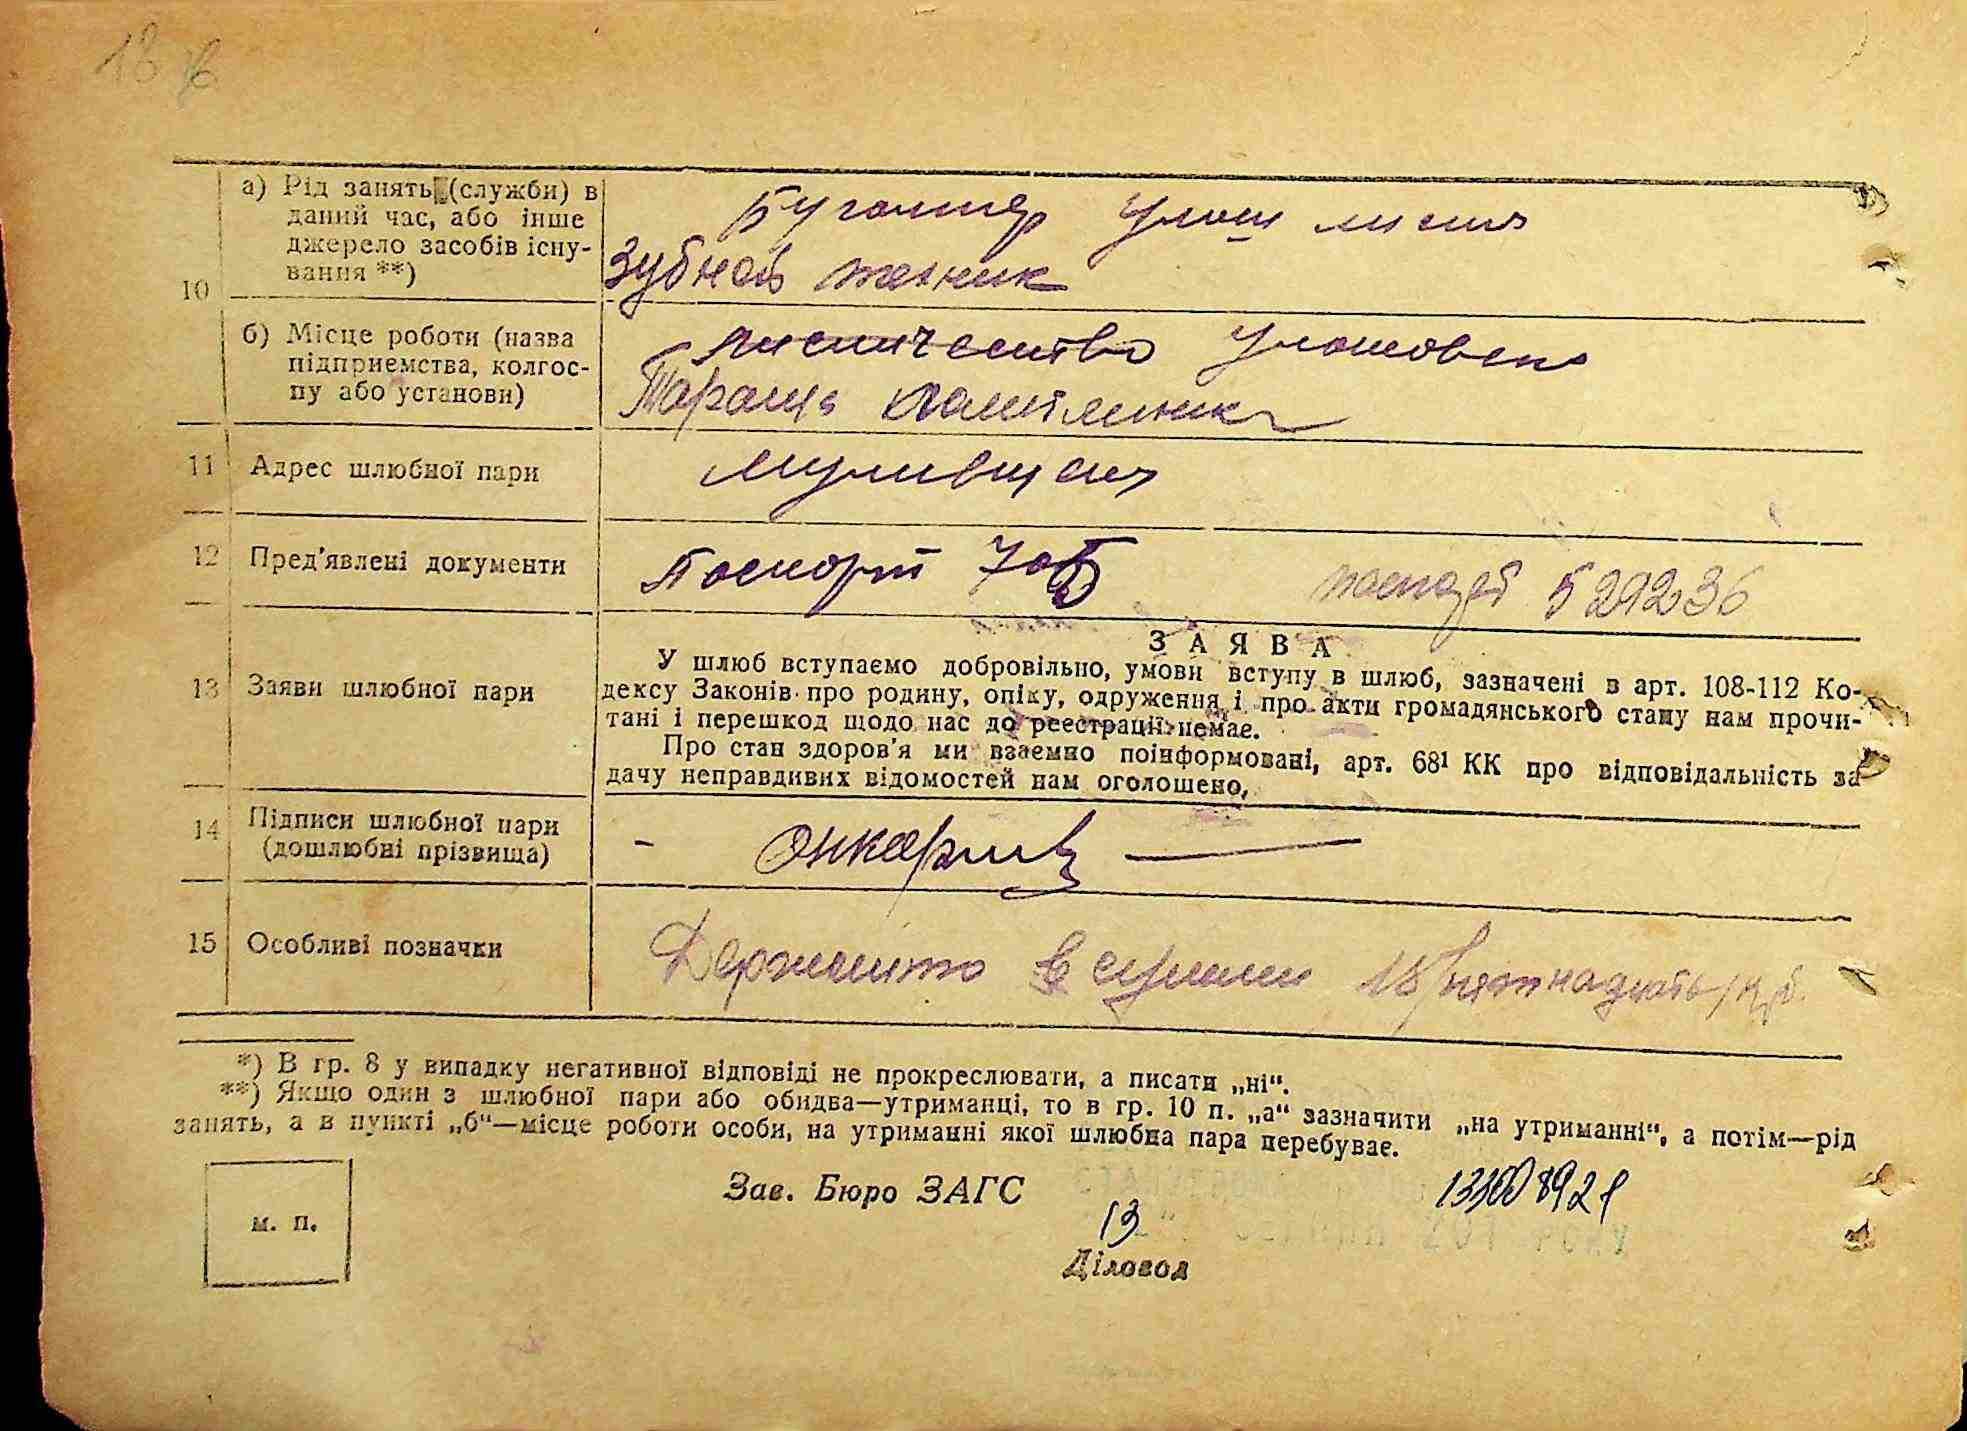 18
10
а) Рід занять (служби) в
даний час, або інше
джерело засобів існу-
вання **)
Бугалтер
Зубной техник
б) Місце роботи (назва
підприємства, колгос-
пу або установи)
лисничество
Тараща
11 Адрес шлюбної пари
12 Пред'явлені документи
Паспорт
529236
13 Заяви шлюбної пари
ЗАЯВА
У шлюб вступаємо добровільно, умови вступу в шлюб, зазначені в арт. 108-112 Ко-
дексу Законів про родину, опіку, одруження і про акти громадянського стану нам прочи-
тані і перешкод щодо нас до реєстрації немає.
Про стан здоров'я ми взаємно поінформовані, арт. 68¹ КК про відповідальність за
дачу неправдивих відомостей нам оголошено,
14 Підписи шлюбної пари
(дошлюбні прізвища)
15 Особливі позначки
*) В гр. 8 у випадку негативної відповіді не прокреслювати, а писати „ні“.
**) Якщо один з шлюбної пари або обидва—утриманці, то в гр. 10 п. „а“ зазначити „на утриманні“, а потім—рід
занять, а в пункті „б“—місце роботи особи, на утриманні якої шлюбна пара перебуває.
м. п.
Зав. Бюро ЗАГС
13
Діловод